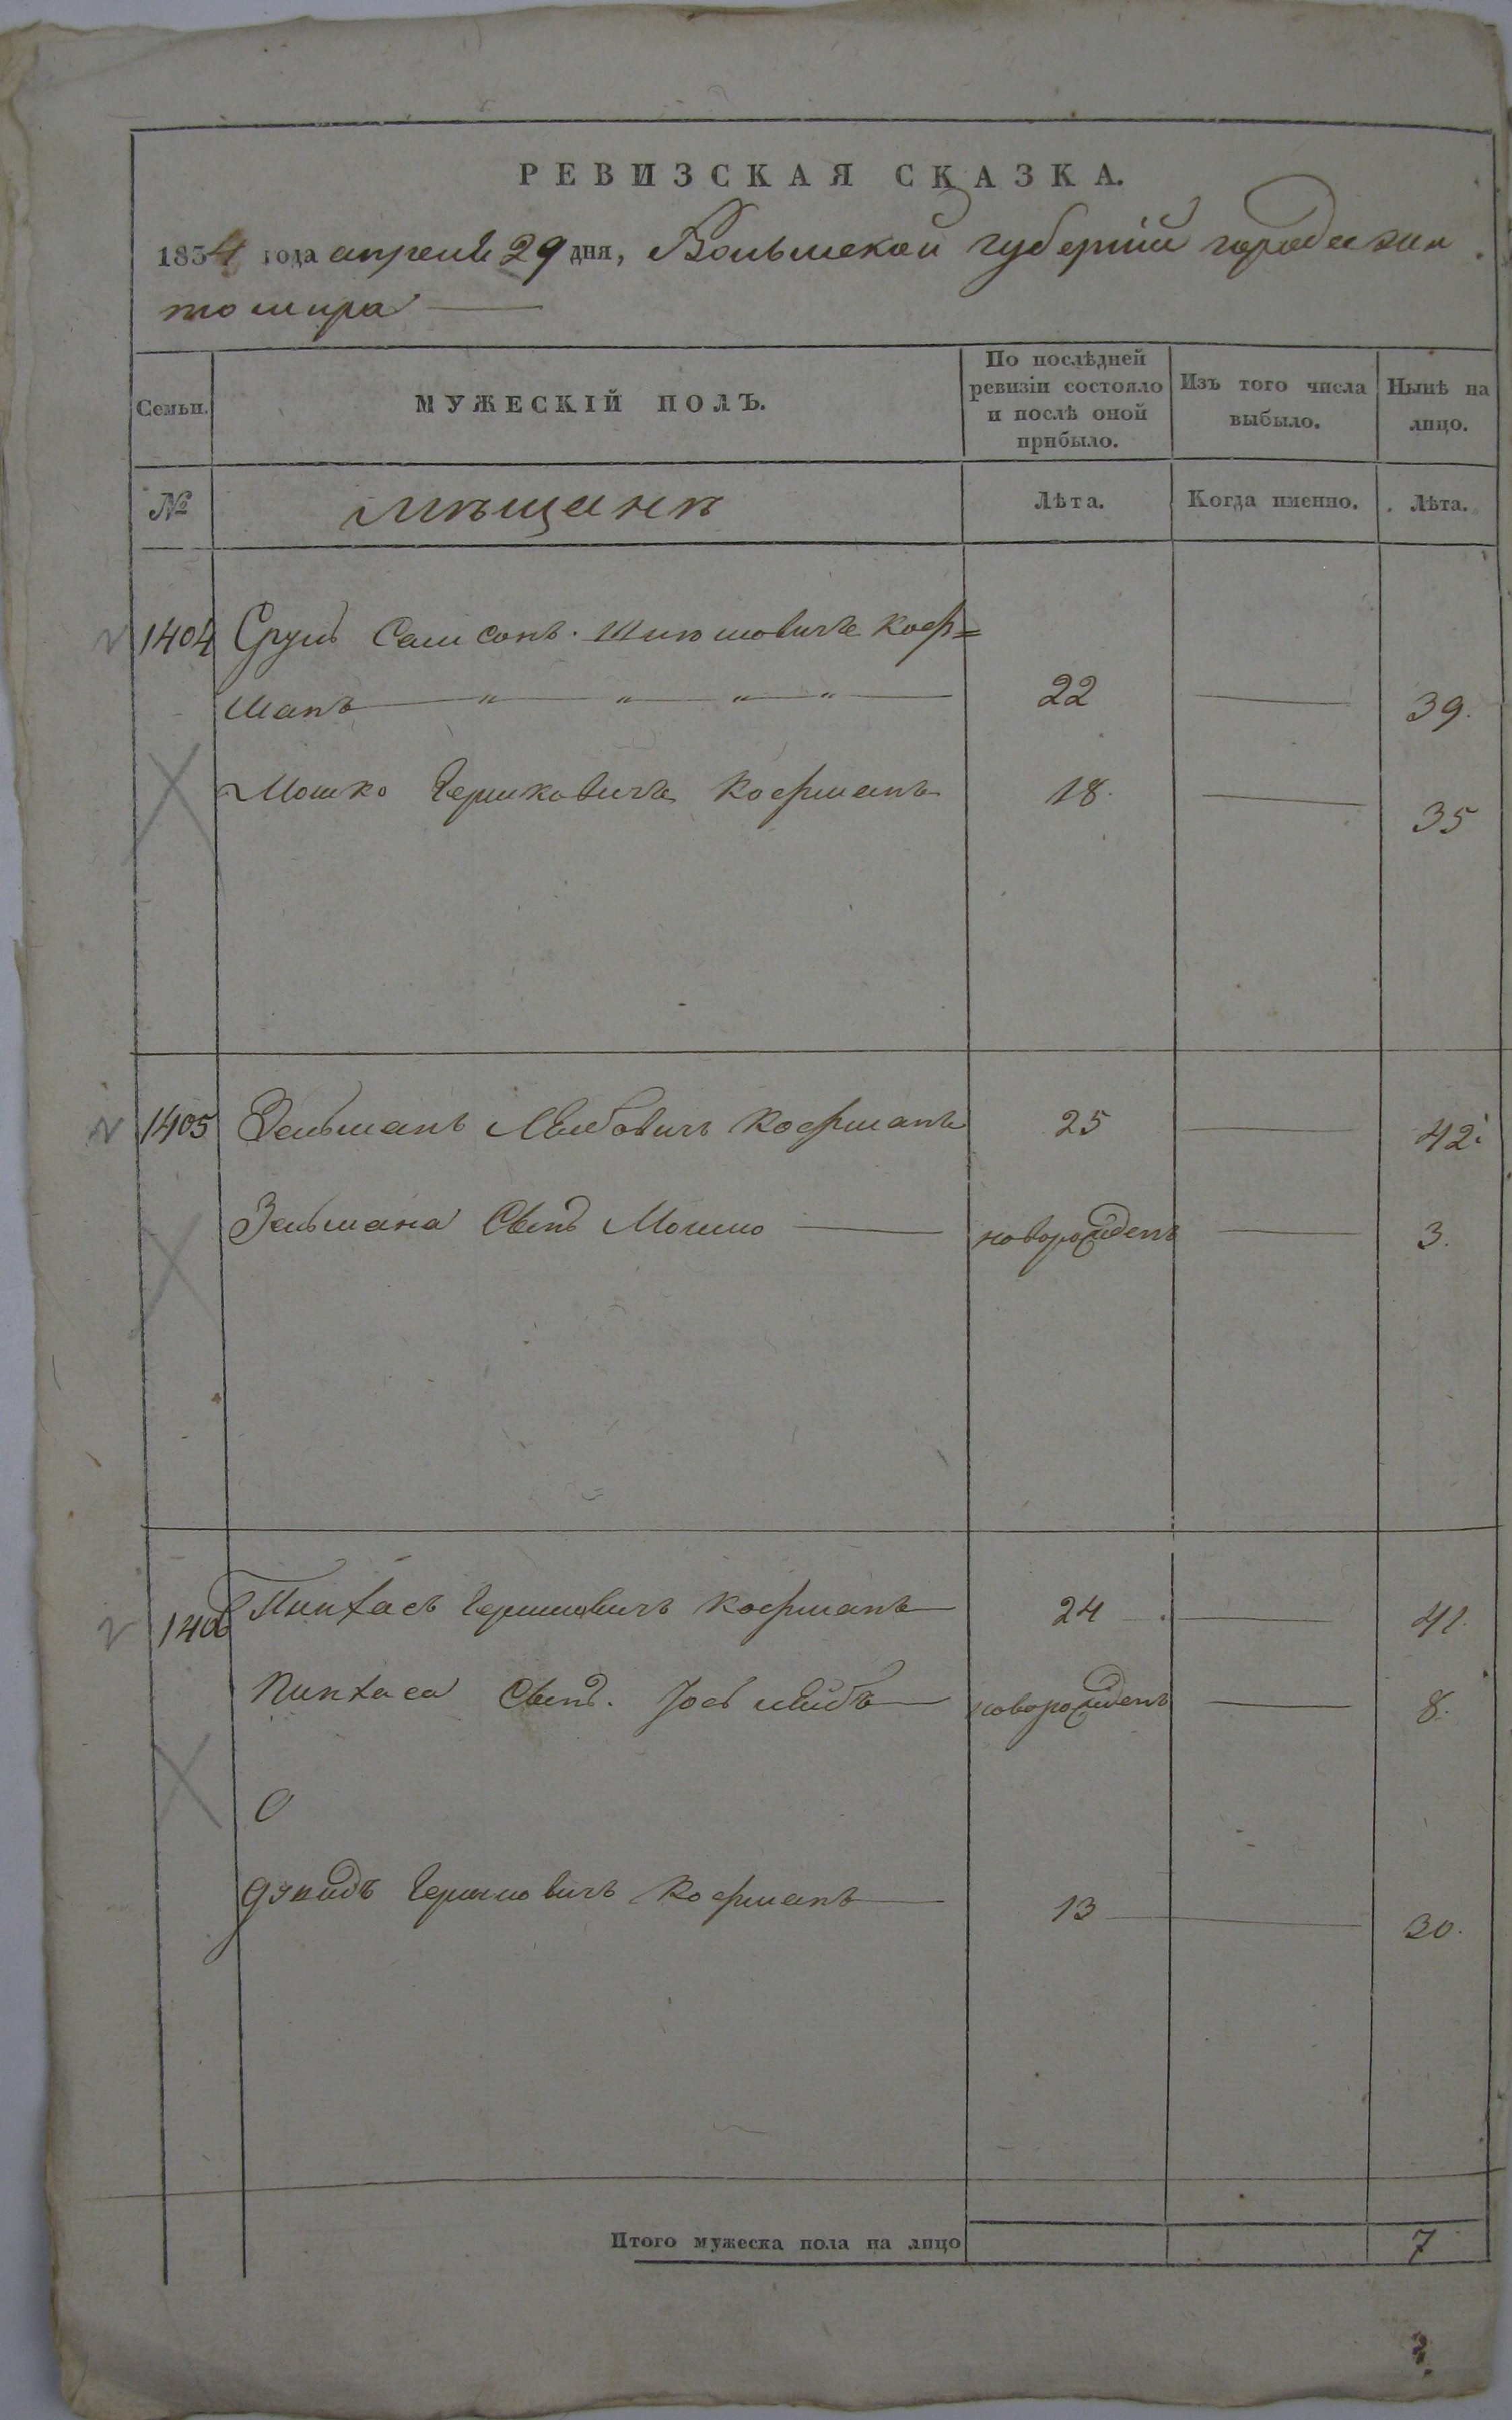 РЕВИЗСКАЯ СКАЗКА.
1854 года апреля 29 дня, Волынской губернии города Жи
томира
Семьи.
МУЖЕСКІЙ ПОЛЪ.
По послѣдней ревизіи состояло и послѣ оной прибыло.
Изъ того числа выбыло.
Нынѣ на лицо.
№
мѣщанѣ
Лѣта.
Когда именно.
Лѣта.
1404 Сруль Самсонъ Коф=
манъ 22 39.
Мошко Гершковичъ Кофманъ 18. 35
1405 Зельманъ Лейбовичъ Кофманъ 25 42
Зельмана Сынъ Мошко новорожденъ 3.
1406 Пинхасъ Гершковичъ Кофманъ 24 41.
Пинхаса Сынъ Іось Лейбъ новорожденъ 8.
Гершковичъ Кофманъ 13 30.
Итого мужеска пола на лицо 7